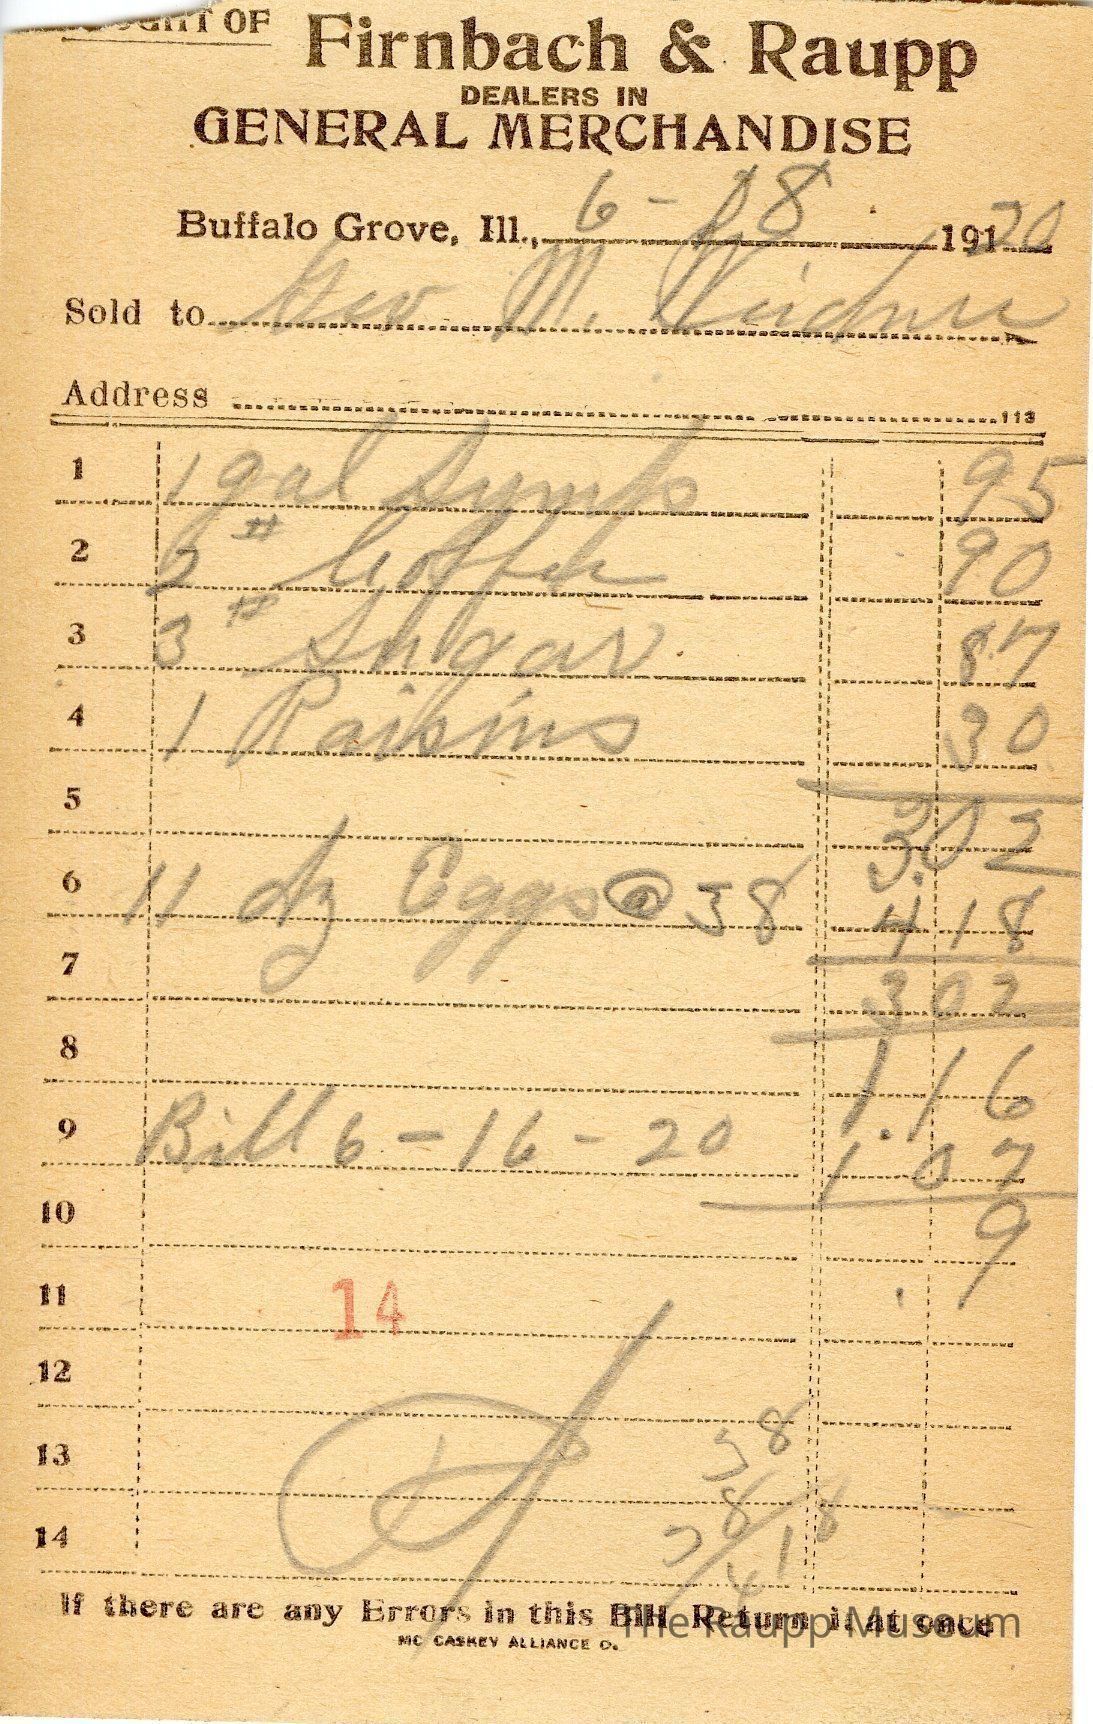 OUGHT OF Firnbach & Raupp
DEALERS IN
GENERAL MERCHANDISE
Buffalo Grove, Ill., 6 - 8 19120
Sold to Geo M.
Address 113
1 1 gal Syrup 95
2 2 # Coffee 90
3 3 # Sugar 87
4 1 Raisins 30
5 3.02
6 11 dz Eggs @ 38 4 18
7 302
8 1.16
9 Bill 6 - 16 - 20 1 07
10 9
11 14
12
13 38
38
14 4 18
If there are any Errors in this Bill Return it at once
MC CASKEY ALLIANCE O.
The Raupp Museum